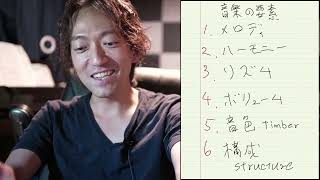 音楽の要素
1. メロディ
2. ハーモニー
3. リズム
4. ボリューム
5. 音色 timber
6 構成
structure